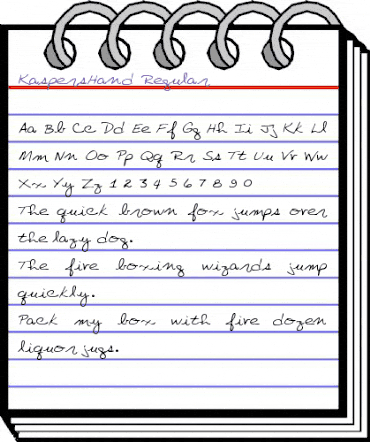 KaspersHand Regular
Aa Bb Cc Dd Ee Ff Gg Hh Ii Jj Kk Ll
Mm Nn Oo Pp Qq Rr Ss Tt Uu Vv Ww
Xx Yy Zz 1 2 3 4 5 6 7 8 9 0
The quick brown fox jumps over
the lazy dog.
The five boxing wizards jump
quickly.
Pack my box with five dozen
liquor jugs.